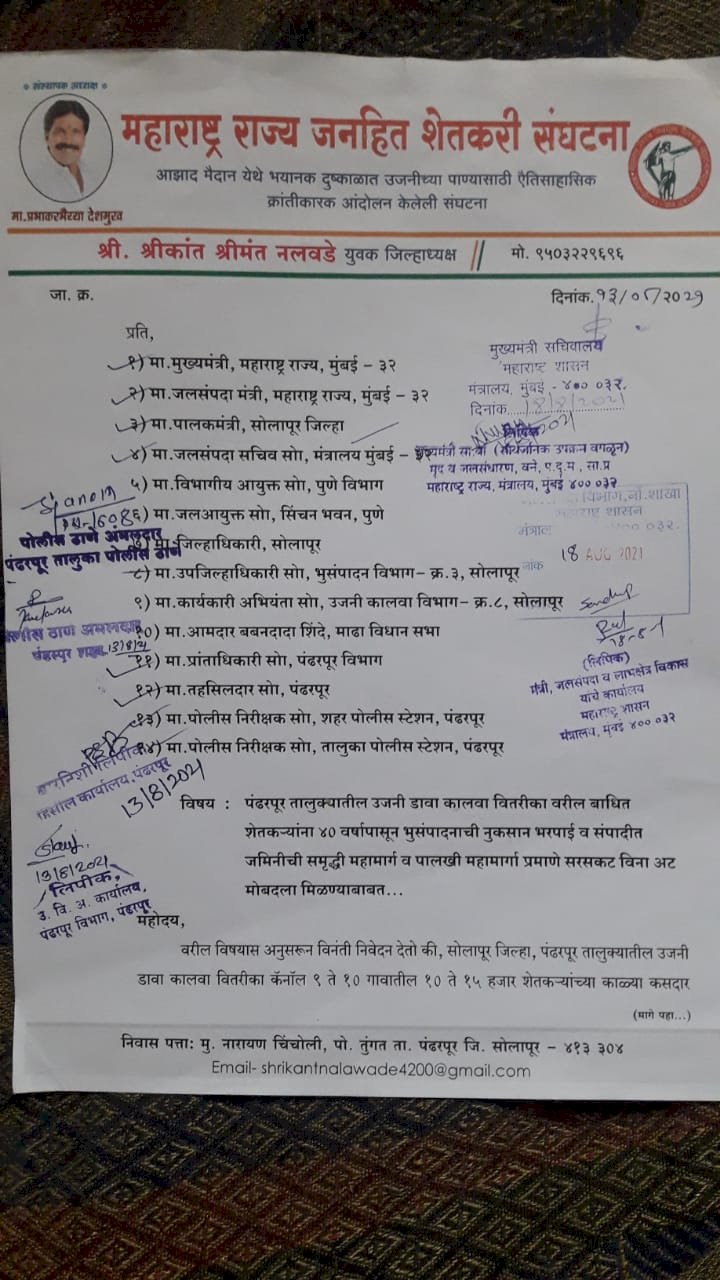 * संस्थापक अध्यक्ष *
महाराष्ट्र राज्य जनहित शेतकरी संघटना
आझाद मैदान येथे भयानक दुष्काळात उजनीच्या पाण्यासाठी ऐतिसाहासिक
क्रांतीकारक आंदोलन केलेली संघटना
मा.प्रभाकरभैय्या देशमुख
श्री. श्रीकांत श्रीमंत नलवडे युवक जिल्हाध्यक्ष // मो. ९५०३२२९६९६
जा. क्र.
दिनांक. १३/०८/२०२१
प्रति,
१) मा.मुख्यमंत्री, महाराष्ट्र राज्य, मुंबई – ३२
२) मा.जलसंपदा मंत्री, महाराष्ट्र राज्य, मुंबई – ३२
३) मा.पालकमंत्री, सोलापूर जिल्हा
४) मा.जलसंपदा सचिव सो, मंत्रालय मुंबई – ३२
५) मा.विभागीय आयुक्त सो, पुणे विभाग
६) मा.जलआयुक्त सो, सिंचन भवन, पुणे
मा.जिल्हाधिकारी, सोलापूर
८) मा.उपजिल्हाधिकारी सो, भुसंपादन विभाग– क्र.३, सोलापूर
९) मा.कार्यकारी अभियंता सो, उजनी कालवा विभाग– क्र.८, सोलापूर
१०) मा.आमदार बबनदादा शिंदे, माढा विधान सभा
११) मा.प्रांताधिकारी सो, पंढरपूर विभाग
१२) मा.तहसिलदार सो, पंढरपूर
१३) मा.पोलीस निरीक्षक सो, शहर पोलीस स्टेशन, पंढरपूर
१४) मा.पोलीस निरीक्षक सो, तालुका पोलीस स्टेशन, पंढरपूर
मुख्यमंत्री सचिवालय
महाराष्ट्र शासन
मंत्रालय, मुंबई - ४०० ०३२.
दिनांक.....18/8/2021
लिपिक
(सार्वजनिक उपक्रम वगळून)
मृद व जलसंधारण, वने, ए.दु.म , सा.प्र
महाराष्ट्र राज्य, मंत्रालय, मुंबई ४०० ०३२
विभाग,नों.शाखा
महाराष्ट्र शासन
मंत्राल ४०० ०३२.
18 AUG 2021
(लिपिक)
मंत्री, जलसंपदा व लाभक्षेत्र विकास
यांचे कार्यालय
महाराष्ट्र शासन
मंत्रालय, मुंबई ४०० ०३२
पोलीस ठाणे अंमलदार
पंढरपूर तालुका पोलीस ठाणे
पोलीस ठाणे अंमलदार
पंढरपूर शहर 13/8/21
13/8/2021
लिपीक
कार्यालय, पंढरपूर
13/8/2021
लिपीक,
उ. वि. अ. कार्यालय,
पंढरपूर विभाग, पंढरपूर
विषय : पंढरपूर तालुक्यातील उजनी डावा कालवा वितरीका वरील बाधित
शेतकऱ्यांना ४० वर्षापासून भुसंपादनाची नुकसान भरपाई व संपादीत
जमिनीची समृद्धी महामार्ग व पालखी महामार्गा प्रमाणे सरसकट विना अट
मोबदला मिळण्याबाबत...
महोदय,
वरील विषयास अनुसरून विनंती निवेदन देतो की, सोलापूर जिल्हा, पंढरपूर तालुक्यातील उजनी
डावा कालवा वितरीका कॅनॉल ९ ते १० गावातील १० ते १५ हजार शेतकऱ्यांच्या काळ्या कसदार
(मागे पहा...)
निवास पत्ता: मु. नारायण चिंचोली, पो. तुंगत ता. पंढरपूर जि. सोलापूर – ४१३ ३०४
Email- shrikantnalawade4200@gmail.com